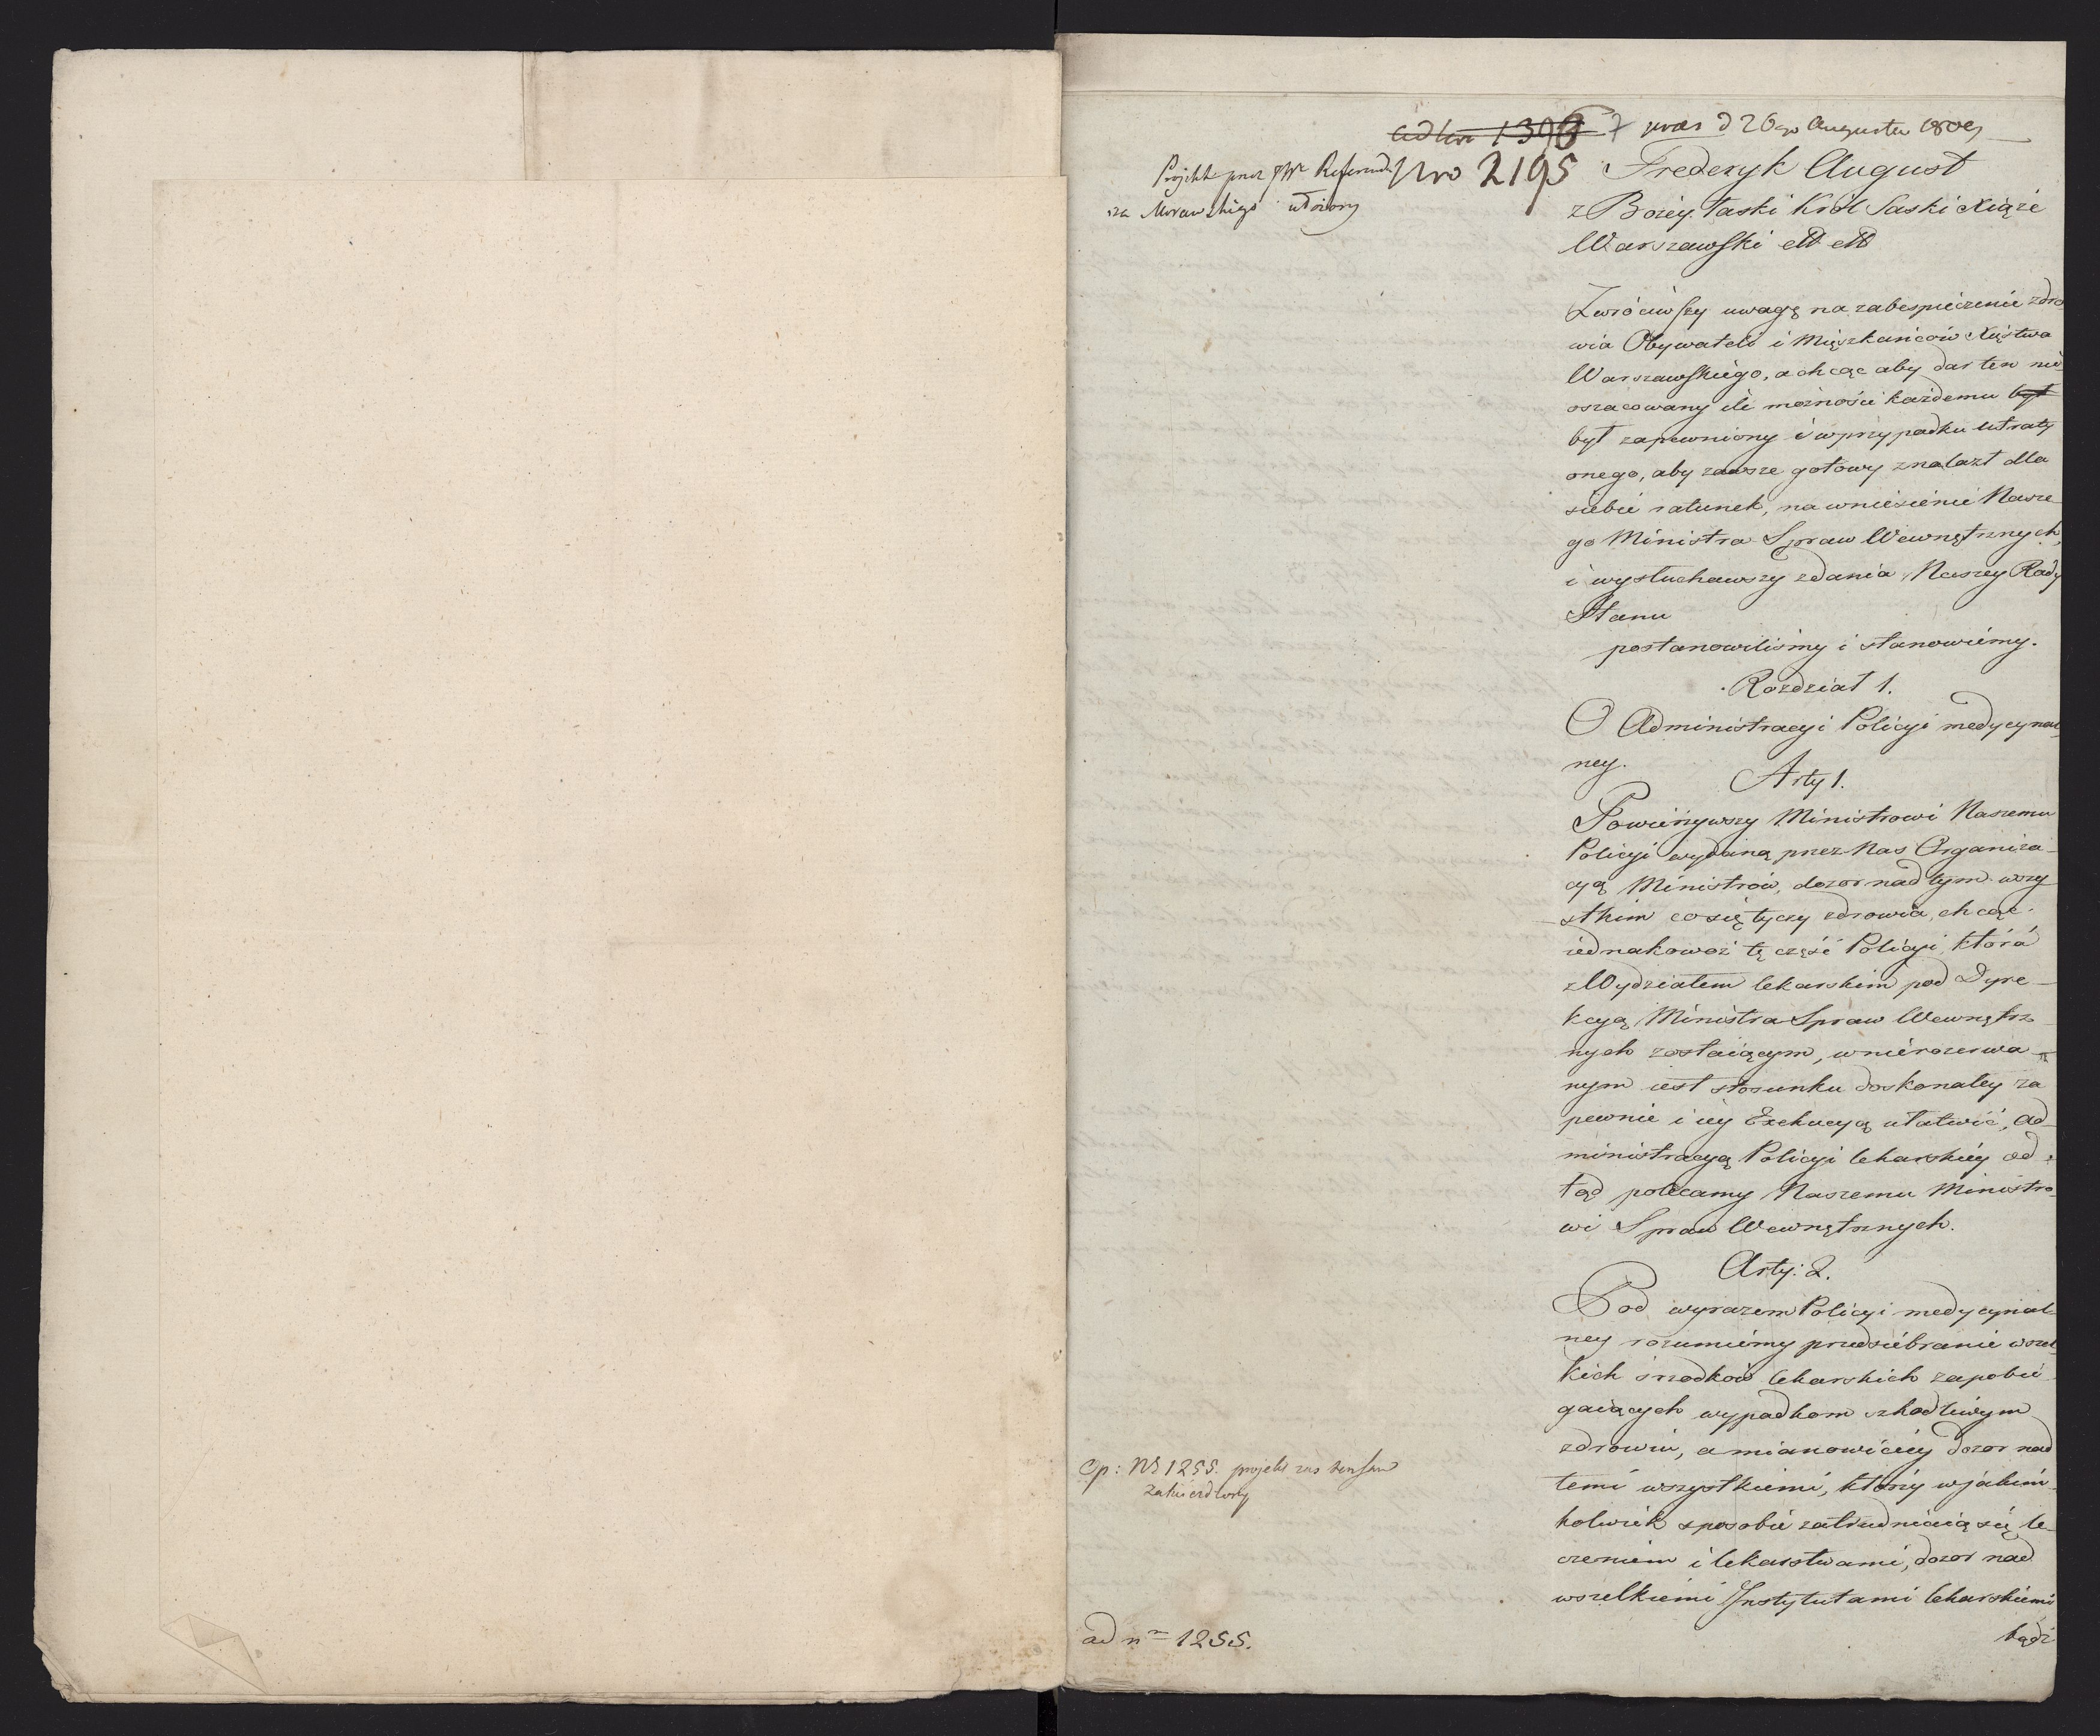 ad Nro 1396 pras d 26go Augusta 1809
Projekt przez JW Referenda Nro 2195
rza Morawskiego ułożony
Frederyk August
z Bożey łaski Król Saski Xiąże
Warszawski etc etc
Zwróciwszy uwagę na zabespieczenie zdro
wia Obywateli i Mięszkańców Xięstwa
Warszawskiego, a chcąc aby dar ten nie
oszacowany ile możności każdemu był
był zapewniony i w przypadku utraty
onego, aby zawsze gotowy znalazł dla
siebie ratunek, na wniesienie Nasze
go Ministra Spraw Wewnętrznych,
i wysłuchawszy zdania Naszey Rady
Stanu
postanowiliśmy i stanowiemy.
Rozdział 1.
O Administracyi Policyi medycynal
ney.
Arty 1.
Powierzywszy Ministrowi Naszemu
Policyi wydaną przez Nas Organiza
cyą Ministrów, dozor nad tym wszy
stkim co się tyczy zdrowia, chcąc
iednakowoż tę część Policyi, która
z Wydziałem lekarskim pod Dyre
kcyą Ministra Spraw Wewnętrz
nych zostaiącym, w nierozerwa
nym iest stosunku doskonaley za
pewnić i iey Exekucyą ułatwić, Ad
ministracyą Policyi lekarskiey od
tąd polecamy Naszemu Ministro
wi Spraw Wewnętrznych.
Arty: 2.
Pod wyrazem Policyi medycynal
ney rozumiemy przedsiębranie wszel
kich srzodków lekarskich zapobie
gaiących wypadkom szkodliwym
zdrowiu, a mianowiciey dozor nad
temi wszystkiemi, którzy w jakim
kolwiek sposobie zatrudniaią się le
czeniem i lekarstwami, dozor nad
wszelkiemi Instytutami lekarskiemi
bądź
Op: Nr 1255. projekt
zatwierdzony
ad nr 1255.